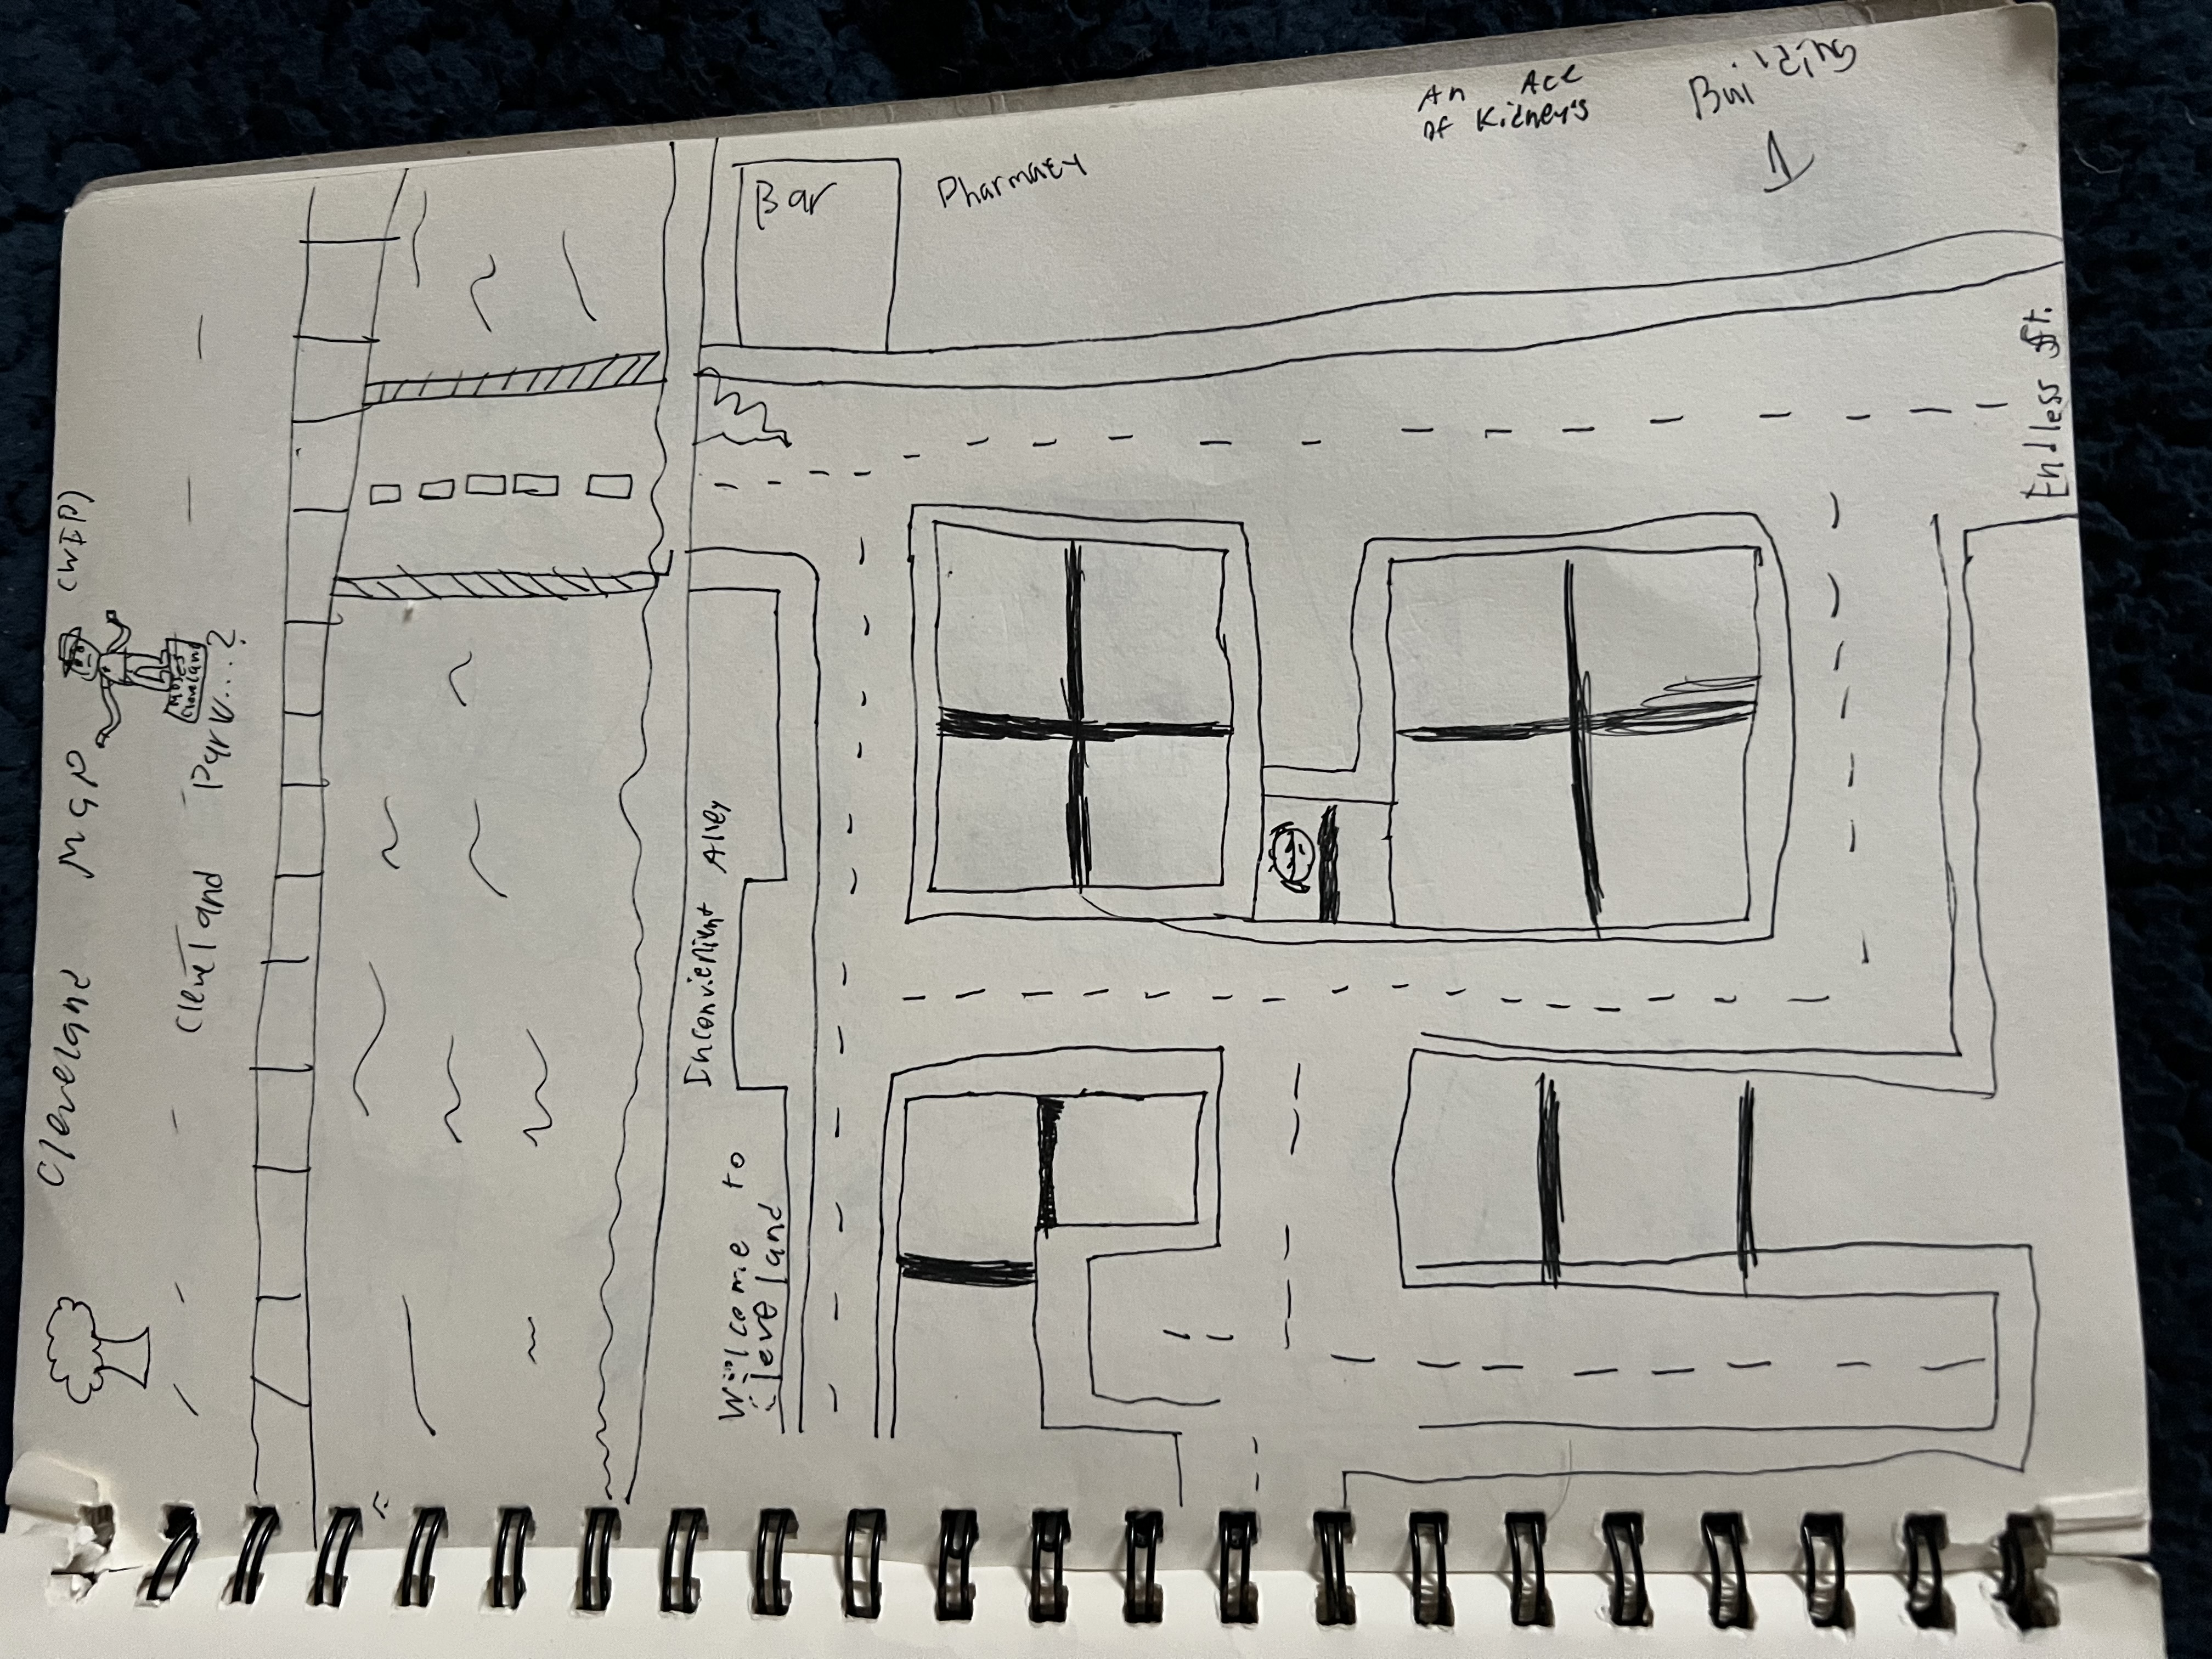 Cleveland Map (WIP)
MOSES
Cleveland
Cleveland Park...?
Inconvienient Alley
Welcome to
Cleveland
Bar
Pharmacy
An Ace
of Kidney's
Building
1
Endless St.